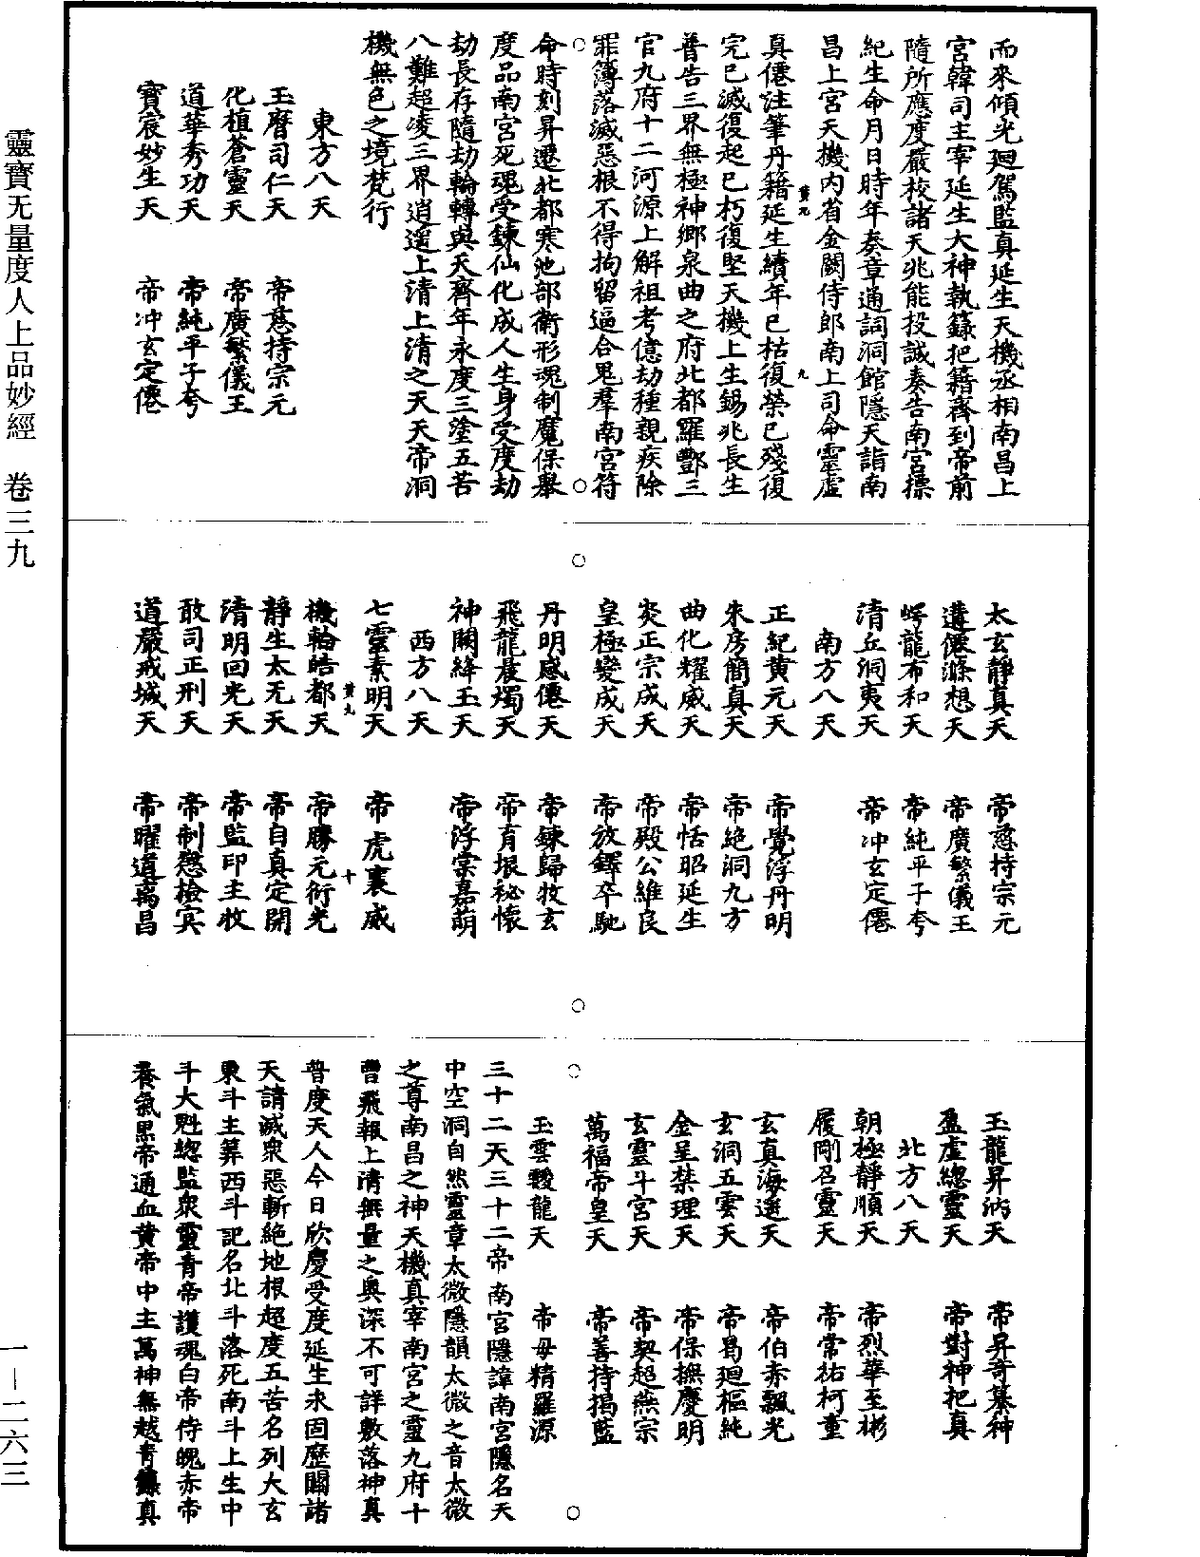 而來傾光廻駕監真延生天機丞相南昌上
宮韓司主宰延生大神執籙把籍齊到帝前
隨所應度嚴校諸天兆能投誠奏告南宮摽
紀生命月日時年奏章通詞洞館隱天詣南
昌上宮天機內省金闕侍郎南上司命靈虛
黃九
九
真僊注筆丹籍延生續年已枯復榮已殘復
完已滅復起已朽復堅天機上生錫兆長生
普告三界無極神鄉泉曲之府北都羅酆三
官九府十二河源上解祖考億劫種親疾除
罪簿落滅惡根不得拘留逼合鬼羣南宮符
命時刻昇遷北都寒池部衛形魂制魔保舉
度品南宮死魂受鍊仙化成人生身受度劫
劫長存隨劫輪轉與天齊年永度三塗五苦
八難超凌三界逍遥上清上清之天天帝洞
機無色之境梵行
東方八天
玉曆司仁天 帝慈持宗元
化植蒼靈天 帝廣繁儀王
道華秀功天 帝純平子夸
寶宸妙生天 帝冲玄定僊
太玄靜真天 帝慈持宗元
遘僊滌想天 帝廣繁儀王
崿龍布和天 帝純平子夸
清丘洞夷天 帝冲玄定僊
南方八天
正紀黃元天 帝覺浮丹明
朱房簡真天 帝絶洞九方
曲化耀威天 帝恬昭延生
炎正宗成天 帝殿公維良
皇極變成天 帝放鐸卒馳
丹明感僊天 帝鍊歸牧玄
飛龍晨燭天 帝育垠祕懷
神闕絳玉天 帝浮棠嘉萌
西方八天
七靈素明天 帝虎裏威
黃九
十
機輪皓都天 帝勝元衍光
靜生太无天 帝自真定開
清明回光天 帝監印主收
敢司正刑天 帝制憖檢賓
道嚴戒城天 帝曜道萬昌
玉龍昇汭天 帝昇奇纂神
盈虛總靈天 帝對神把真
北方八天
朝極靜順天 帝烈華至彬
履剛召靈天 帝常祐柯童
玄真海遥天 帝伯赤飄光
玄洞五雲天 帝曷廻樞純
金呈禁理天 帝保撫慶明
玄靈斗宮天 帝契超燕宗
萬福帝皇天 帝善持揭監
玉雲靉龍天 帝毋精羅源
三十二天三十二帝南宮隱諱南宮隱名天
中空洞自然靈章太微隱韻太微之音太微
之尊南昌之神天機真宰南宮之靈九府十
曹飛報上清無量之奥深不可詳敷落神真
普度天人今日欣慶受度延生永固歷關諸
天請滅衆惡斬絶地根超度五苦名列大玄
東斗主筭西斗記名北斗落死南斗上生中
斗大魁總監衆靈青帝護魂白帝侍魄赤帝
養氣黑帝通血黃帝中主萬神無越青真
靈寶无量度人上品妙經 卷三九
一—二六三